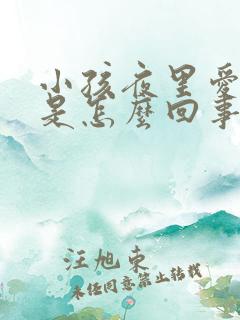 小孩夜里爱
是怎么回事
汪旭东
未经同意禁止转载